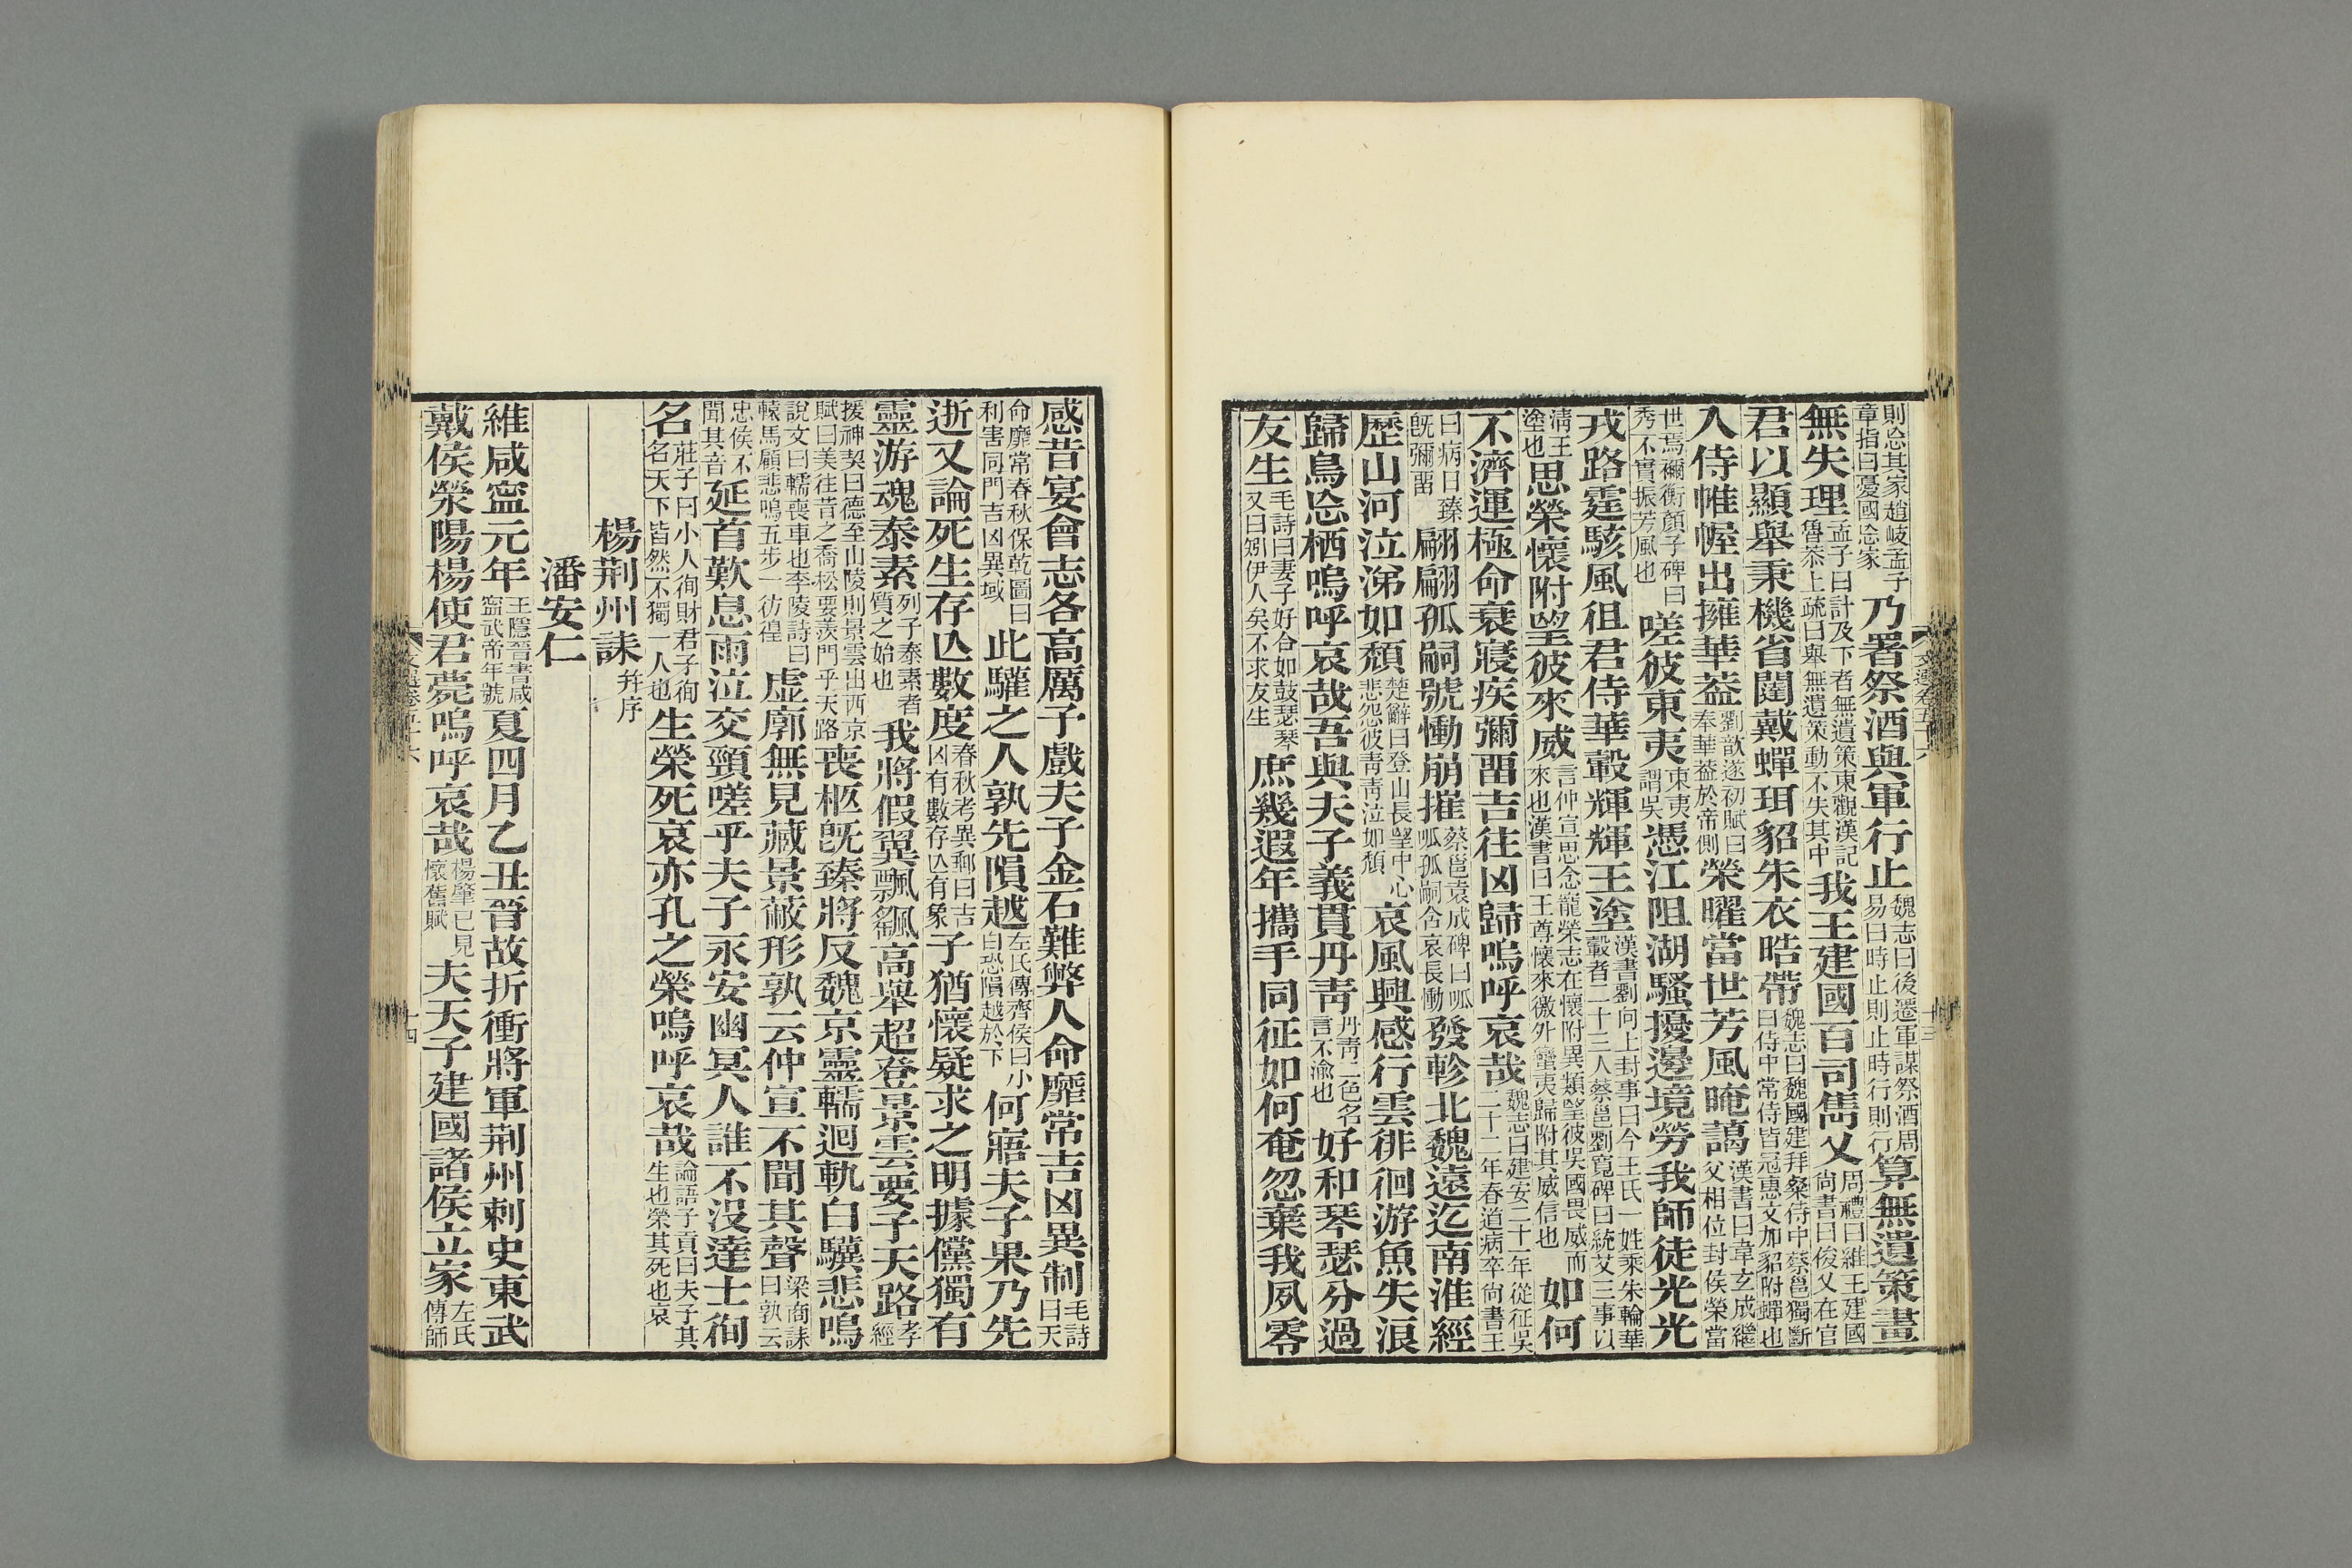 則忩其家趙岐孟子章指曰憂國忩家乃署祭酒與軍行止魏志曰後遷軍謀祭酒周易曰時止則止時行則行算無遺策畫
無失理孟子曰計及下者無遺策東觀漢記魯恭上疏曰舉無遺策動不失其中我王建國百司儁乂周禮曰維王建國尙書曰俊乂在官
君以顯舉秉機省闥戴蟬珥貂朱衣晧帶魏志曰魏國建拜粲侍中蔡邕獨斷曰侍中常侍皆冠惠文加貂附蟬也
入侍帷幄出擁華葢劉歆遂初賦曰奉華葢於帝側榮曜當世芳風晻藹漢書曰韋玄成繼父相位封侯榮當
世焉禰衡顏子碑曰秀不實振芳風也嗟彼東夷東夷謂吳憑江阻湖騷擾邊境勞我師徒光光
戎路霆駭風徂君侍華轂輝輝王塗漢書劉向上封事曰今王氏一姓乘朱輪華轂者二十三人蔡邕劉寬碑曰統艾三事以
淸王塗也思榮懷附望彼來威言仲宣思念寵榮志在懷附異類望彼吳國畏威而來也漢書曰王尊懷來徼外蠻夷歸附其威信也如何
不濟運極命衰寢疾彌畱吉往凶歸嗚呼哀哉魏志曰建安二十一年從征吳二十二年春道病卒尙書王
曰病日臻旣彌畱翩翩孤嗣號慟崩摧蔡邕袁成碑曰呱呱孤嗣含哀長慟發軫北魏遠迄南淮經
歷山河泣涕如頹楚辭曰登山長望中心悲怨彼靑靑泣如頹哀風興感行雲徘徊游魚失浪
歸鳥忩栖嗚呼哀哉吾與夫子義貫丹靑丹靑二色名言不渝也好和琴瑟分過
友生毛詩曰妻子好合如鼓瑟琴又曰矧伊人矣不求友生庶幾遐年攜手同征如何奄忽棄我夙零
文選卷五十六
十三
感昔宴會志各高厲予戲夫子金石難弊人命靡常吉凶異制毛詩曰天
命靡常春秋保乾圖曰利害同門吉凶異域此驩之人孰先隕越左氏傳齊侯曰小白恐隕越於下何寤夫子果乃先
逝又論死生存亾數度春秋考異郵曰吉凶有數存亾有象子猶懷疑求之明據儻獨有
靈游魂泰素列子泰素者質之始也我將假翼飄颻高舉超登景雲要子天路孝經
援神契曰德至山陵則景雲出西京賦曰美往昔之喬松要羨門乎天路喪柩旣臻將反魏京靈轜迴軌白驥悲鳴
說文曰轜喪車也李陵詩曰轅馬顧悲鳴五步一彷徨虛廓無見藏景蔽形孰云仲宣不聞其聲梁商誄曰孰云
忠侯不聞其音延首歎息雨泣交頸嗟乎夫子永安幽冥人誰不沒達士徇
名莊子曰小人徇財君子徇名天下皆然不獨一人也生榮死哀亦孔之榮嗚呼哀哉論語子貢曰夫子其生也榮其死也哀
楊荆州誄幷序
潘安仁
維咸寍元年王隱晉書咸寍武帝年號夏四月乙丑晉故折衝將軍荆州刺史東武
戴侯滎陽楊使君薨嗚呼哀哉楊肇已見懷舊賦夫天子建國諸侯立家左氏傳師
文選卷五十六
十四